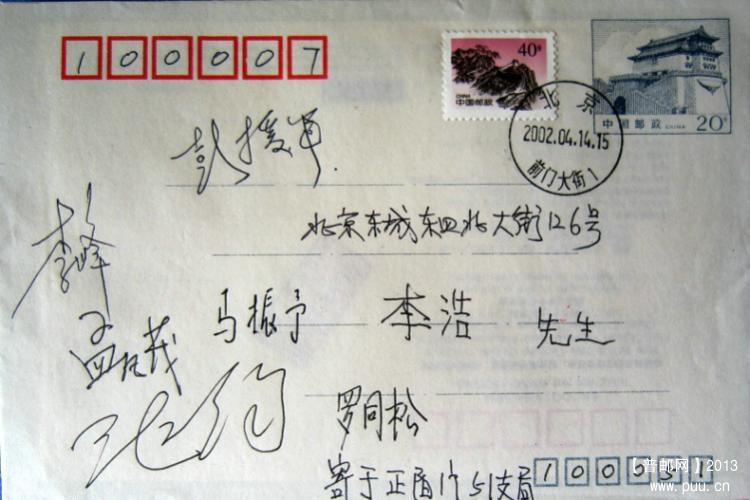 100007
40分
CHINA
中国邮政
中国邮政 CHINA 20分
北京
2002.04.14.15
前门大街1
彭援军
北京东城东四北大街126号
李峰
马振予 李浩 先生
孟凡茂
罗同松
寄于正阳门支局
【普邮网】2013
www.puu.cn